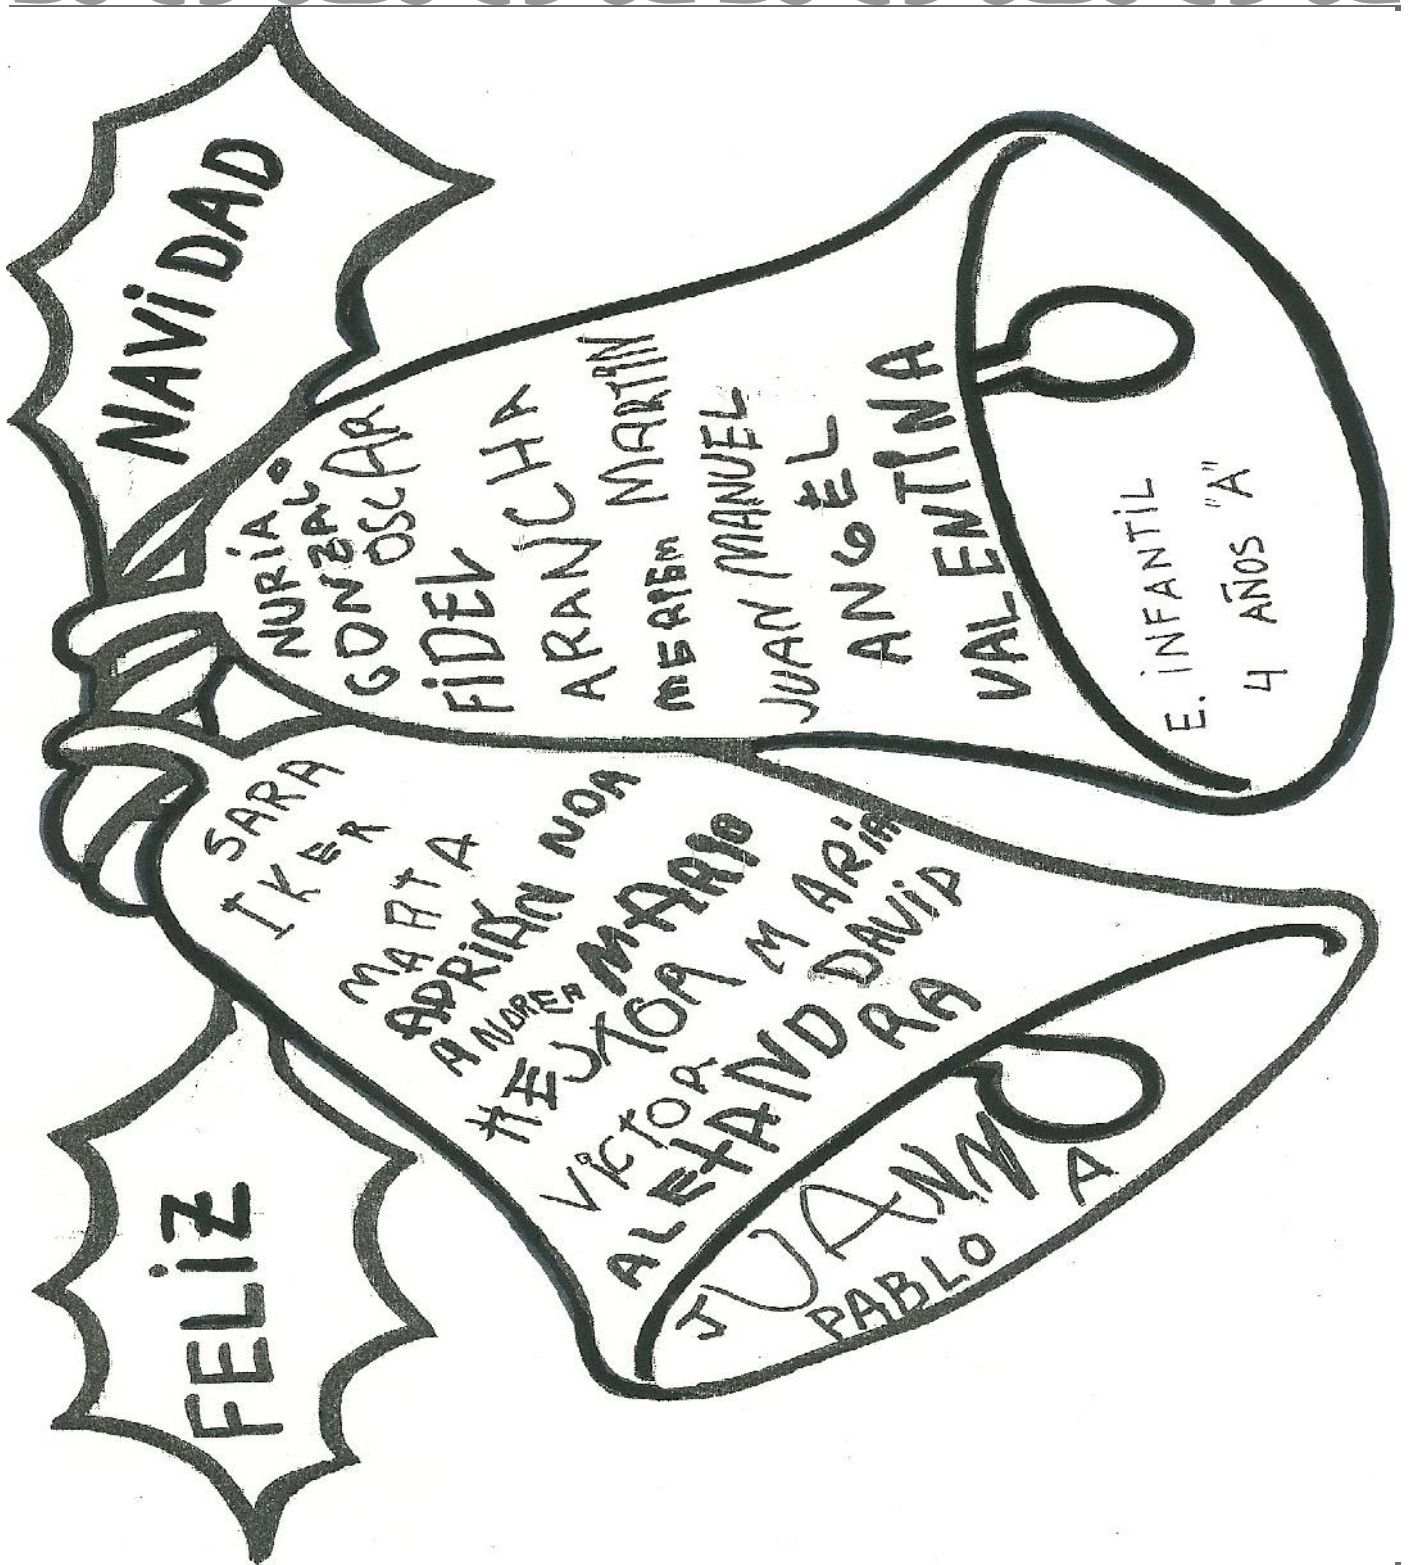 FELiZ
NAViDAD
SARA
IKER
MARTA
ADRIÁN NOA
ANDREA MARIO
HEJTOR MARÍA
VICTOR DAVID
ALEXANDRA
JUANN
PABLO A
NURiA
GONZALO
OSCAR
FiDEL
ARANCHA
MERIEM MARTÍN
JUAN MANUEL
ANGEL
VALENTINA
E. iNFANTiL
4 AÑOS "A"